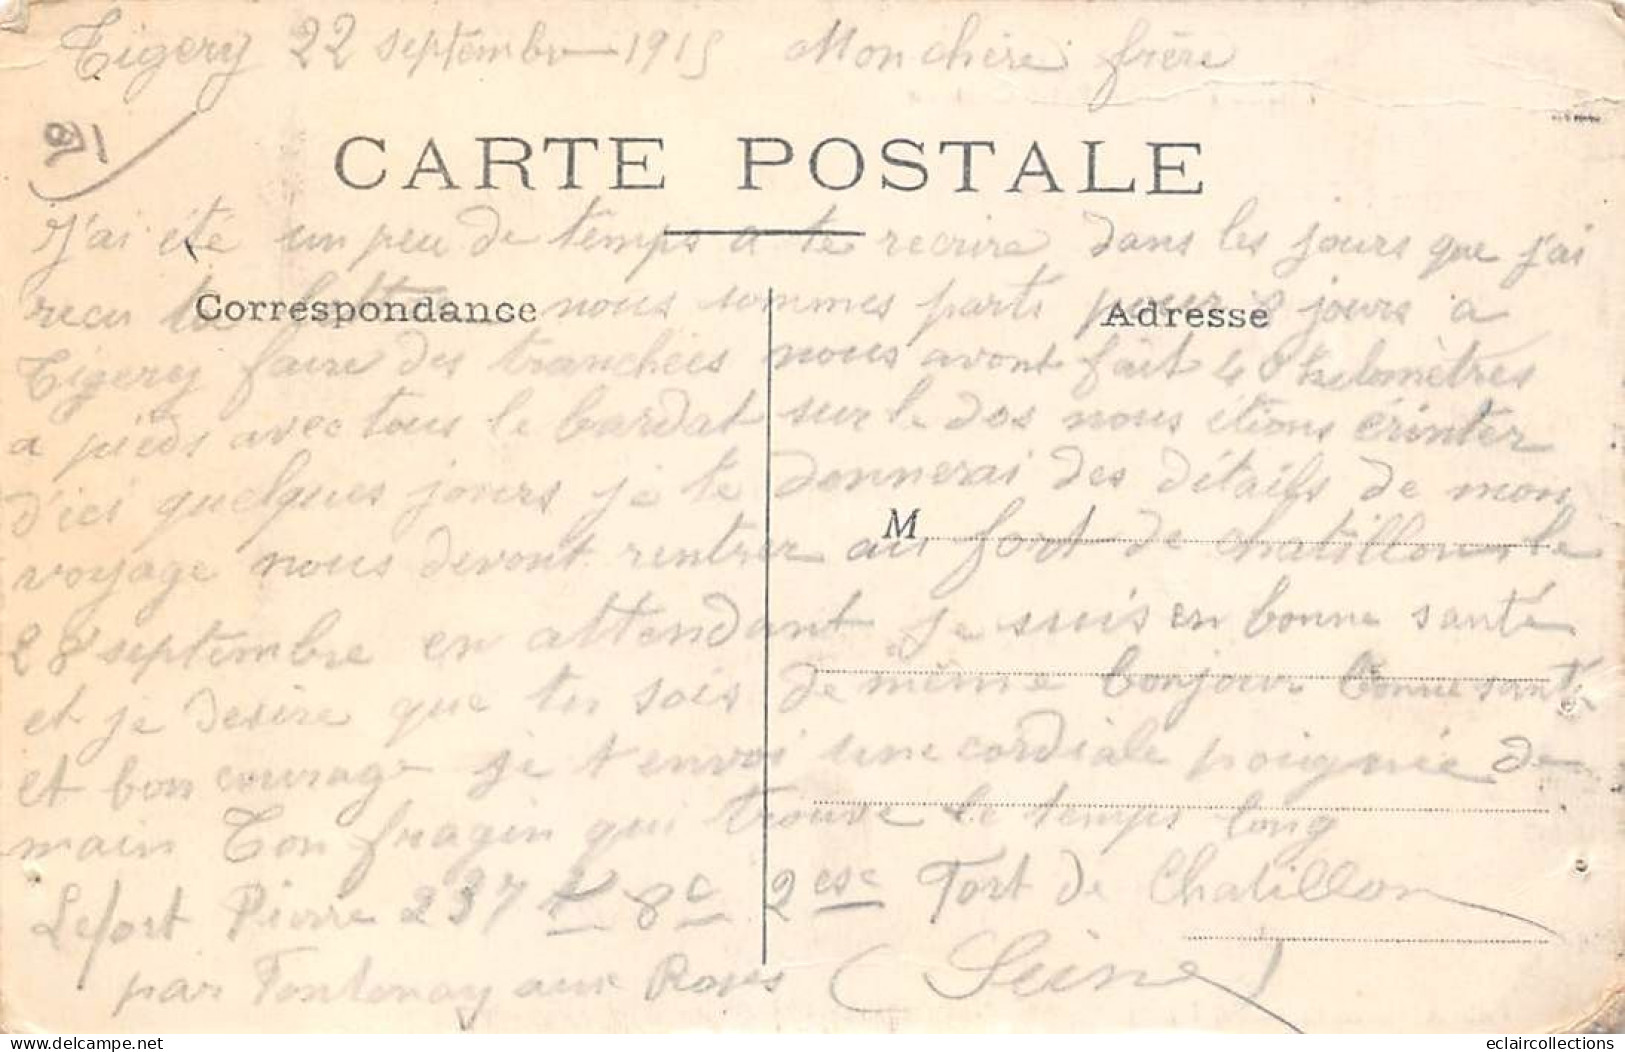 Tigery 22 septembre 1915 Mon chère frère
91
CARTE POSTALE
J'ai été un peu de temps a te recrire dans les jours que j'ai
Correspondance
Adresse
recu ta lettre nous sommes parts pour 8 jours a
Tigery faire des tranchées nous avont fait 40 kilomètres
a pieds avec tous le bardat sur le dos nous étions érinter
d'ici quelques jours je te donnerai des détails de mon
M
voyage nous devont rentrer au fort de chatillon le
28 septembre en attendant je suis en bonne santé
et je desire que tu sois de même bonjour bonne santé
et bon courage je t'envoi une cordiale poignée de
main Ton qui trouve le temps long
Lefort Pierre 237 t 8c 2 Fort de Chatillon
par Fontenay aux Roses (Seine)
eclaircollections